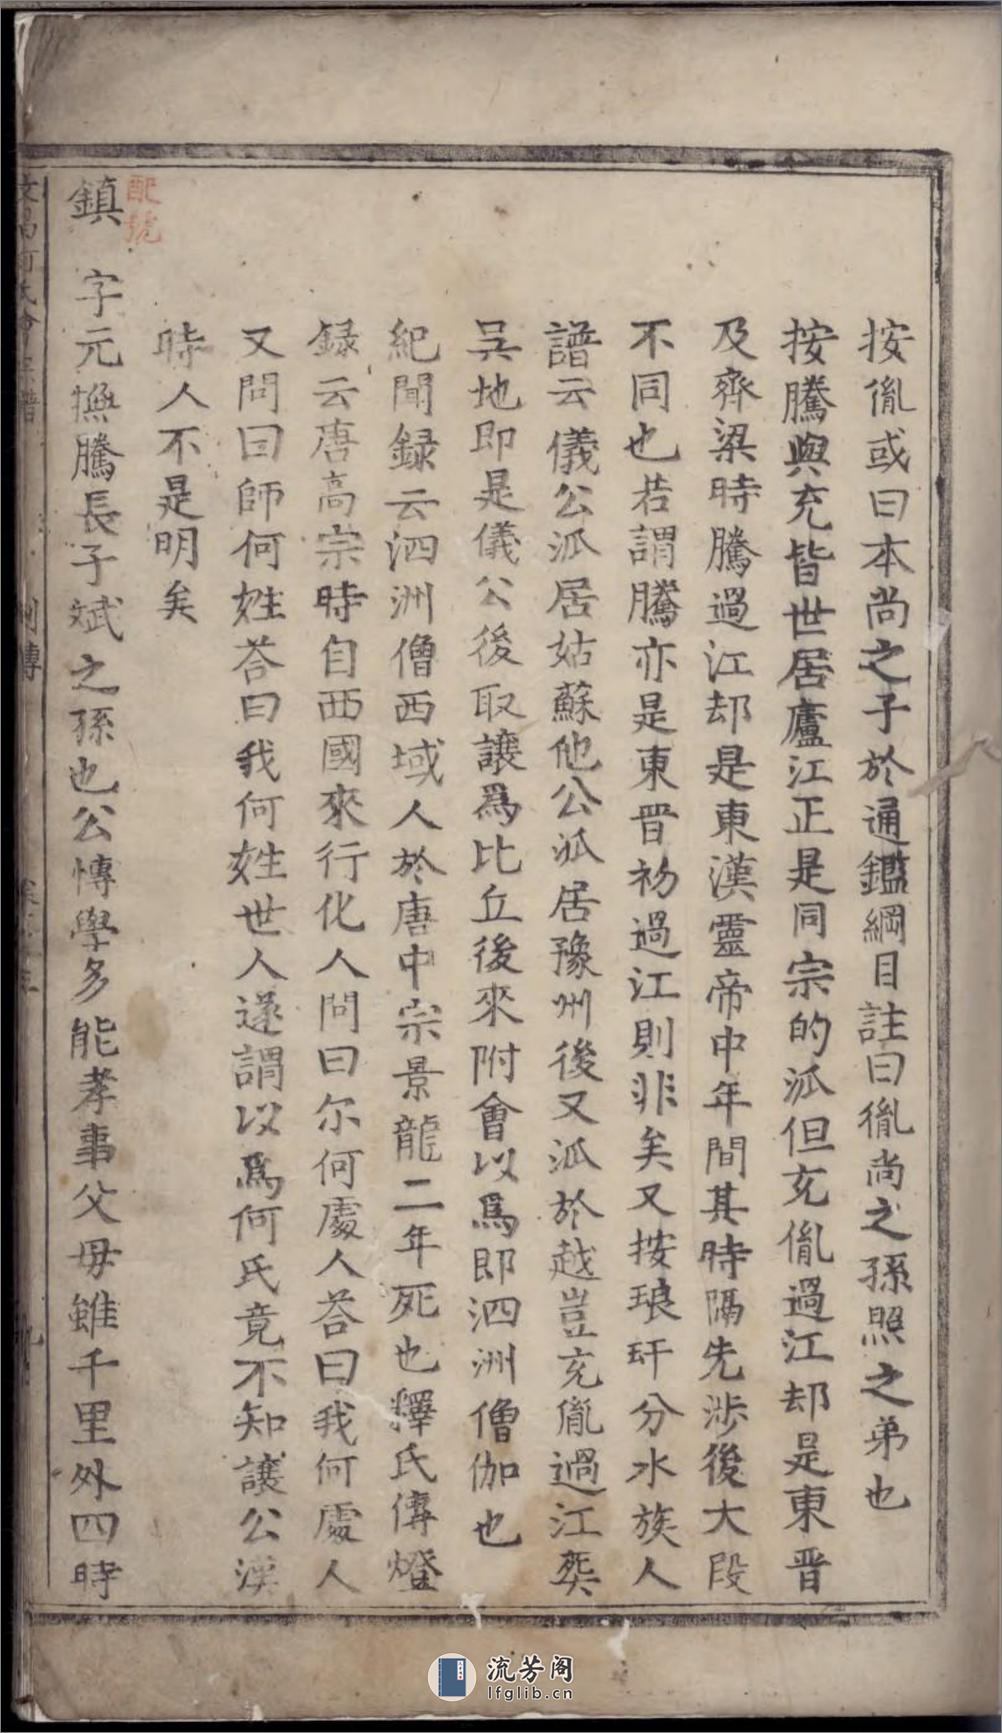 按胤或曰本尚之子於通鑑綱目註曰胤尚之孫照之弟也
按騰與充皆世居廬江正是同宗的泒但充胤過江却是東晋
及齊梁時騰過江却是東漢靈帝中年間其時隔先涉後大段
不同也若謂騰亦是東晋初過江則非矣又按琅玕分水族人
譜云儀公泒居姑蘇他公泒居豫州後又泒於越豈充胤過江奕
吴地即是儀公後取讓爲比丘後來附會以爲即泗洲僧伽也
紀聞録云泗洲僧西域人於唐中宗景龍二年死也釋氏傳燈
録云唐高宗時自西國來行化人問曰尔何處人荅曰我何處人
又問曰師何姓荅曰我何姓世人遂謂以爲何氏竟不知讓公漢
時人不是明矣
配號
鎮 字元撫騰長子斌之孫也公博學多能孝事父毋雖千里外四時
列傳
流芳阁
lfglib.cn